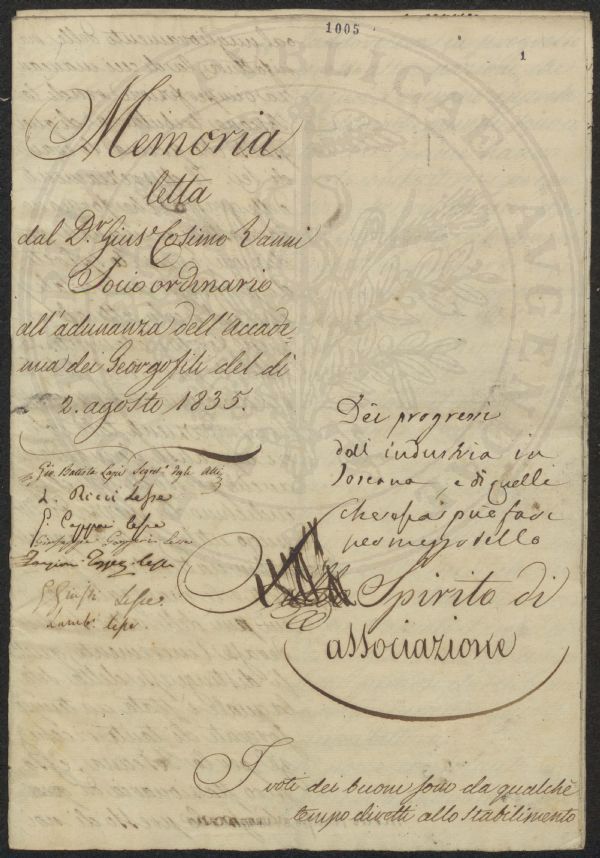 1005
1
Memoria
letta
dal D.r Gius.e Cosimo Vanni
Socio ordinario
all'adunanza dell'Accade-
mia dei Georgofili del dì
2. agosto 1835.
Gio. Batista Lapi Segret.o degli Atti
L. Ricci lesse
G. Capponi lesse
lesse
lesse
G. Giusti lesse.
Lamb. lesse.
Dei progressi
dell industria in
Toscana, e di quelli
che essa può fare
per mezzo dello
Spirito di
associazione
I voti dei buoni sono da qualche
tempo diretti allo stabilimento
PUBLICAE
AVGE